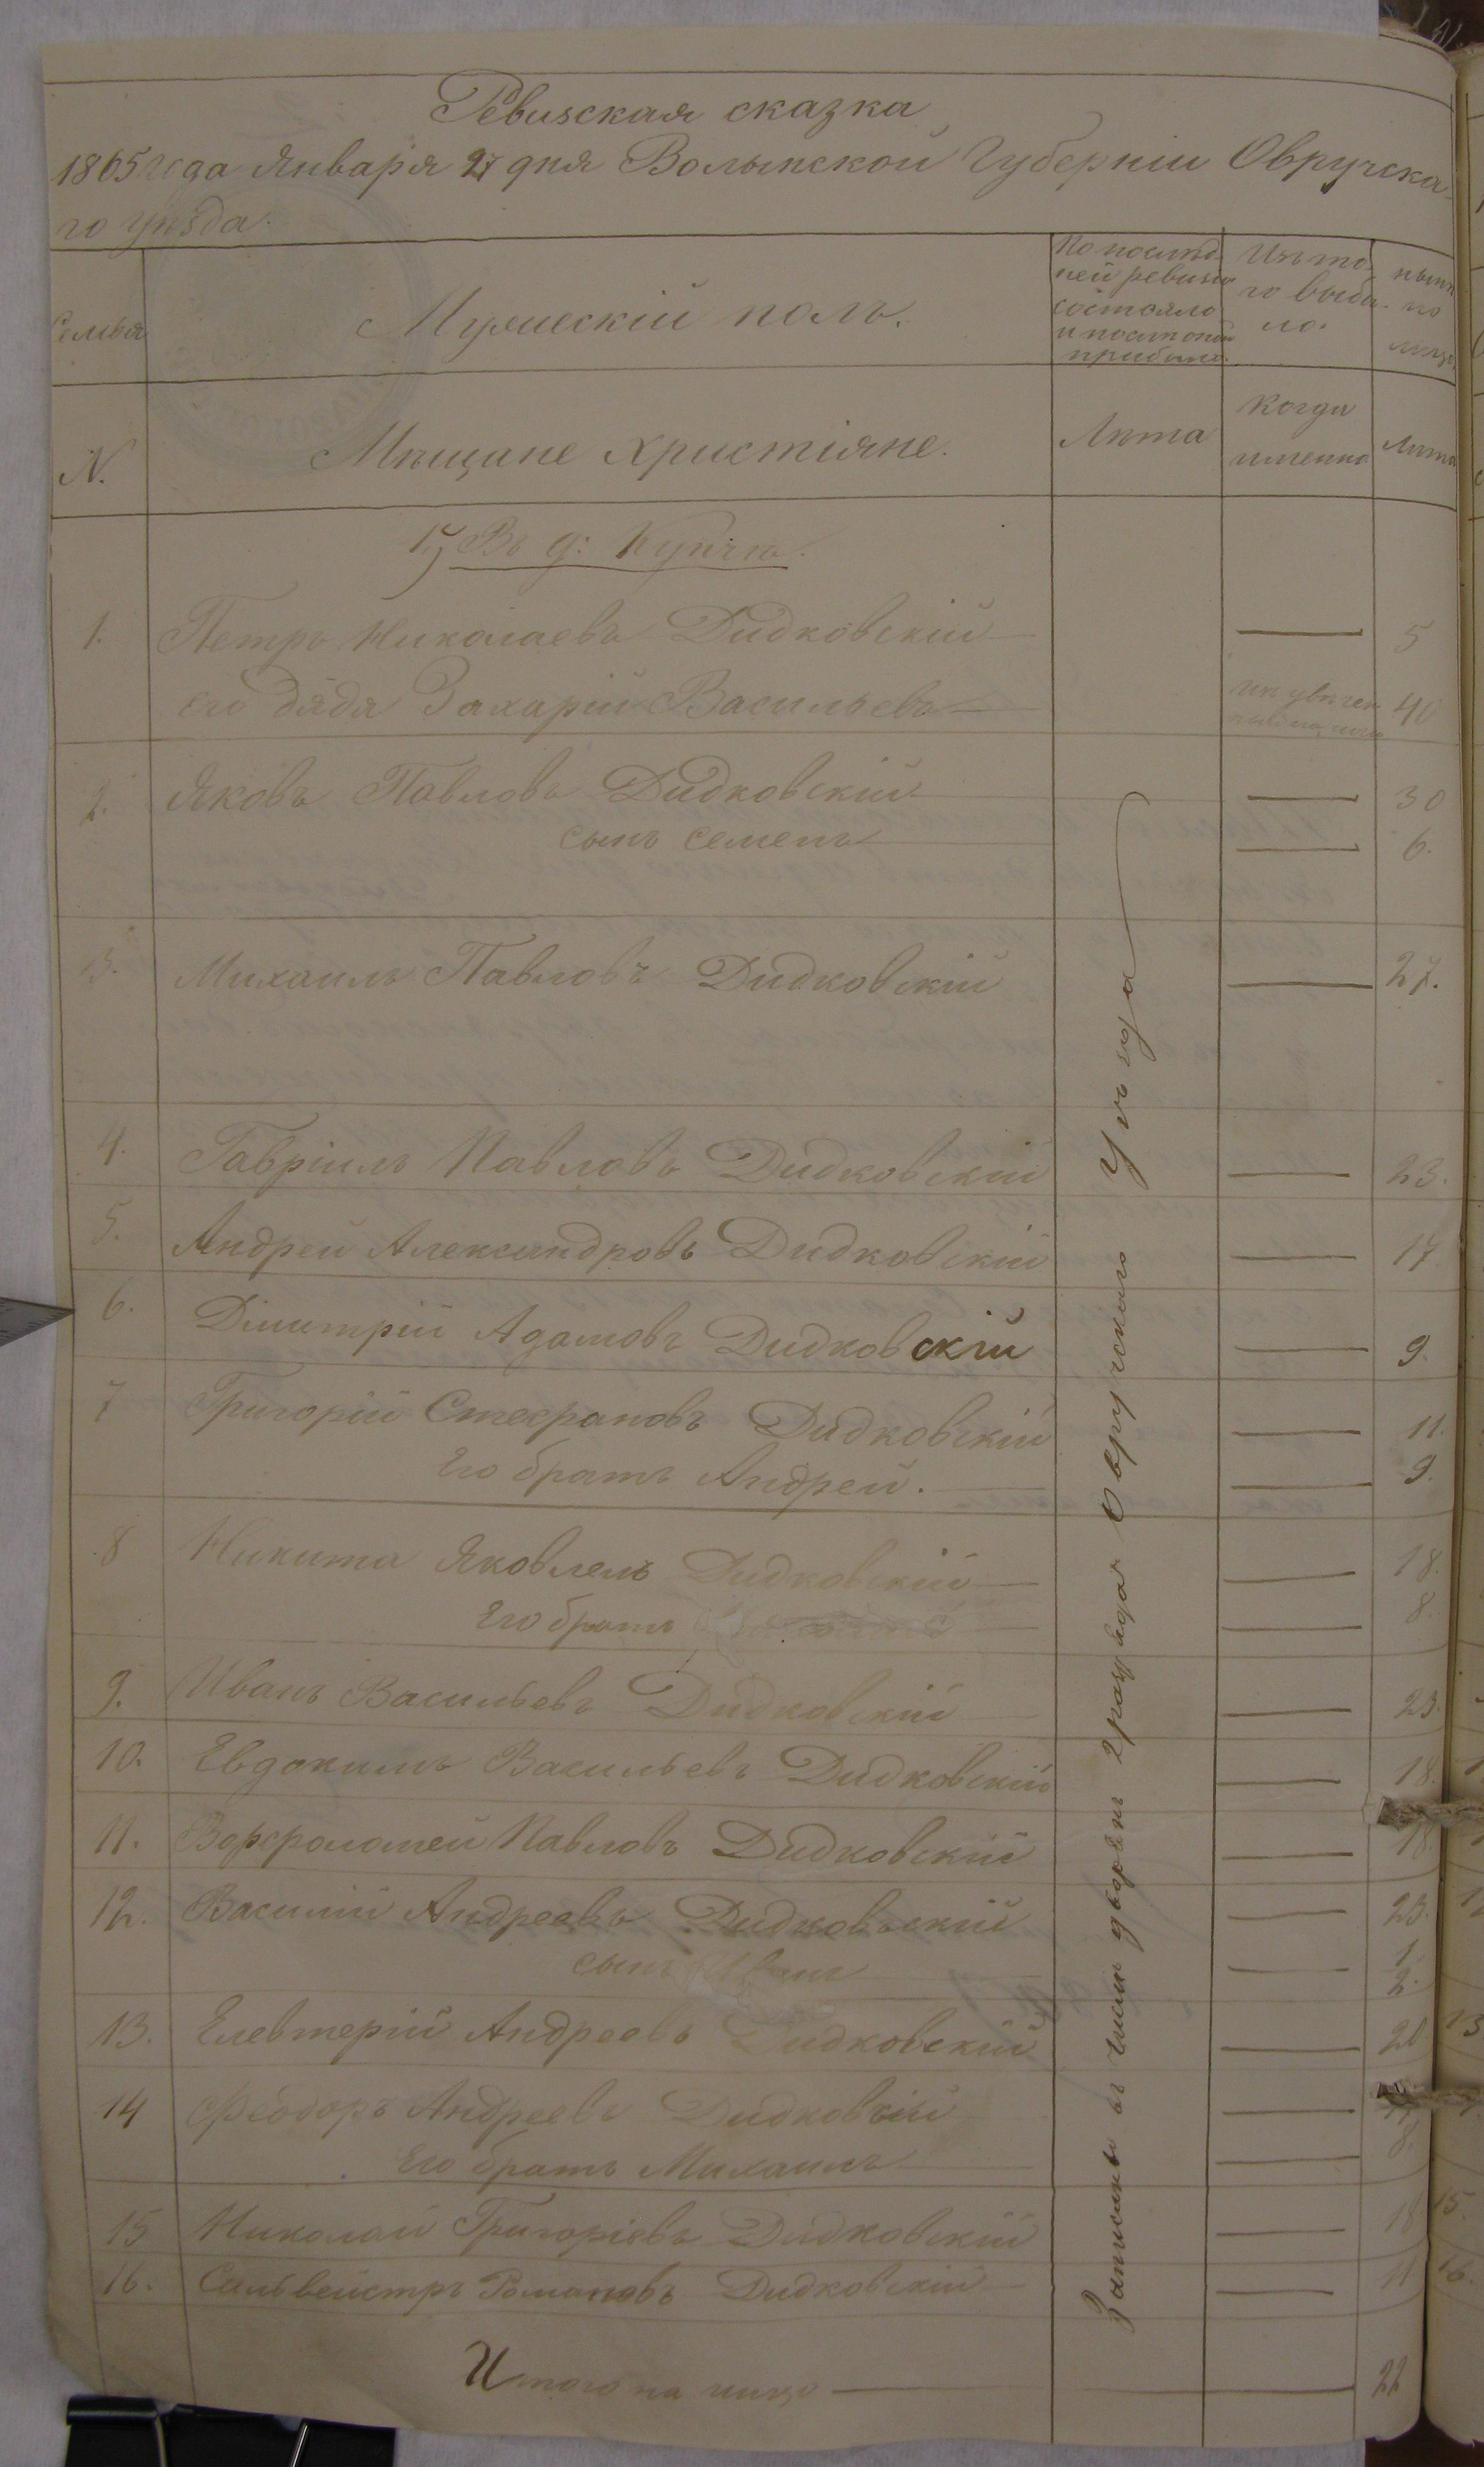 Ревизская сказка
1865 года Января 27 дня Волынской Губерніи Овручска-
го уѣзда.
Семья
Мужескій полъ.
По послѣд-
ней ревизіи
состояло
и послѣ оной
прибыло.
Изъ то-
го выбы-
ло.
нынѣ
на
лицо
N.
Мѣщане Христіяне.
Лѣта
Когда
именно
Лѣта
Въ д:
1. Петръ Николаевъ Дидковскій — 5
его дядя Захарій Васильевъ 40
2. Яковъ Павловъ Дидковскій — 30
сынъ Семенъ — 6.
3. Михаилъ Павловъ Дидковскій — 27.
4. Гавріилъ Павловъ Дидковскій — 23.
5. Андрей Александровъ Дидковскій — 17
6. Димитрій Адамовъ Дидковскій — 9.
7 Григорій Стефановъ Дидковскій — 11.
Его братъ Андрей. — 9.
8 Никита Яковлевъ Дидковскій — 18.
Его братъ — 8.
9. Иванъ Васильевъ Дидковскій — 23.
10. Евдокимъ Васильевъ Дидковскій — 18.
11. Варфоломей Павловъ Дидковскій — 18.
12. Василій Андреевъ Дидковскій — 23.
сынъ Иванъ — 1/2.
13. Елевтерій Андреевъ Дидковскій — 20
14 Феодоръ Андреевъ Дидковскій —
Его братъ Михаилъ — 8.
15 Николай Григоріевъ Дидковскій — 18
16. Сельвейстръ Романовъ Дидковскій — 11
Итого на лицо — 22
Записаны въ число дворянъ Овручскаго Уѣзда